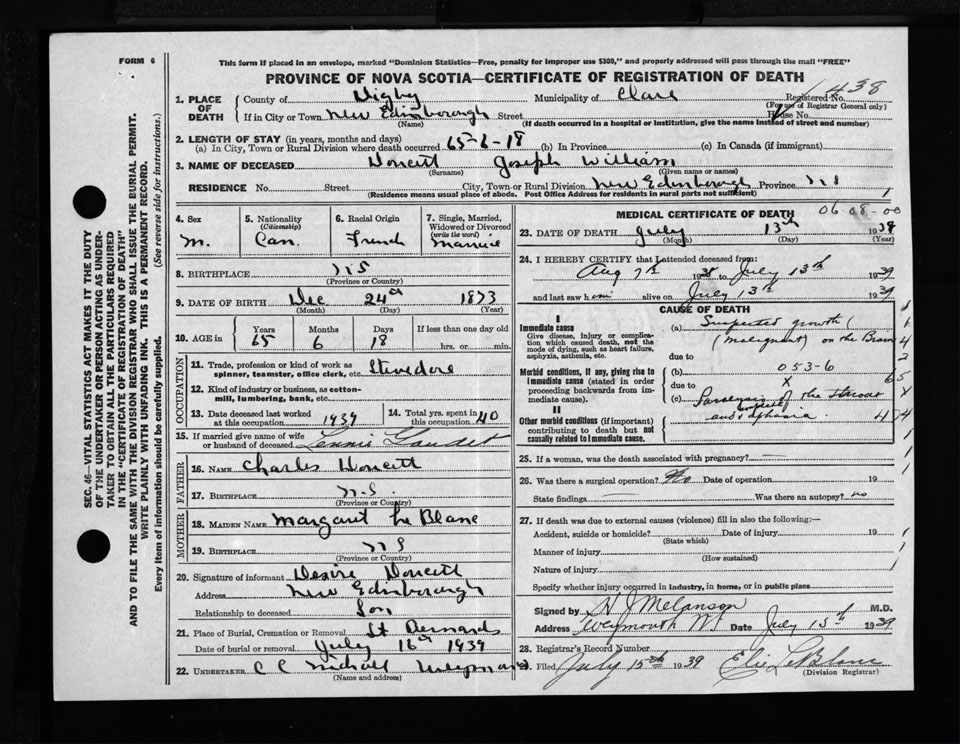 FORM 6
This form if placed in an envelope, marked "Dominion Statistics—Free, penalty for improper use $300," and properly addressed will pass through the mail "FREE"
PROVINCE OF NOVA SCOTIA—CERTIFICATE OF REGISTRATION OF DEATH
1438
1. PLACE OF DEATH
County of Digby Municipality of Clare Registered No.
(For use of Registrar General only)
If in City or Town New Edinborough Street House No.
(Name) (If death occurred in a hospital or institution, give the name instead of street and number)
2. LENGTH OF STAY (in years, months and days)
(a) In City, Town or Rural Division where death occurred 65-6-18 (b) In Province (c) In Canada (if immigrant)
3. NAME OF DECEASED Doucett Joseph William
(Surname) (Given name or names)
RESIDENCE No. Street City, Town or Rural Division New Edinborough Province NS
(Residence means usual place of abode. Post Office Address for residents in rural parts not sufficient)
4. Sex
M.
5. Nationality
(Citizenship)
Can.
6. Racial Origin
French
7. Single, Married, Widowed or Divorced
(write the word)
Married
8. BIRTHPLACE NS
(Province or Country)
9. DATE OF BIRTH Dec 24 1873
(Month) (Day) (Year)
10. AGE in
Years Months Days If less than one day old
65 6 18 hrs. or min.
OCCUPATION
11. Trade, profession or kind of work as spinner, teamster, office clerk, etc. Stevedore
12. Kind of industry or business, as cotton-mill, lumbering, bank, etc.
13. Date deceased last worked at this occupation 1939
14. Total yrs. spent in this occupation 40
15. If married give name of wife or husband of deceased Gaudet
FATHER
16. NAME Charles Doucett
17. BIRTHPLACE N.S.
(Province or Country)
MOTHER
18. MAIDEN NAME Margaret Le Blanc
19. BIRTHPLACE NS
(Province or Country)
20. Signature of informant Desire Doucett
Address New Edinborough
Relationship to deceased Son
21. Place of Burial, Cremation or Removal St Bernards
Date of burial or removal July 16 1939
22. UNDERTAKER C C Weymouth
(Name and address)
MEDICAL CERTIFICATE OF DEATH
06 08-00
23. DATE OF DEATH July 13th 1939
(Month) (Day) (Year)
24. I HEREBY CERTIFY that I attended deceased from:
Aug 7th 1938 to July 13th 1939
and last saw him alive on July 13th 1939
CAUSE OF DEATH
I
Immediate cause
Give disease, injury or complication which caused death, not the mode of dying, such as heart failure, asphyxia, asthenia, etc.
(a) Suspected growth
(malignant) on the Brain
due to
Morbid conditions, if any, giving rise to immediate cause (stated in order proceeding backwards from immediate cause).
(b) 053-6
due to X
(c) of the throat
and aphasia.
II
Other morbid conditions (if important) contributing to death but not causally related to Immediate cause.
25. If a woman, was the death associated with pregnancy?
26. Was there a surgical operation? No Date of operation 19
State findings Was there an autopsy? no
27. If death was due to external causes (violence) fill in also the following:—
Accident, suicide or homicide? Date of injury 19
(State which)
Manner of injury
(How sustained)
Nature of injury
Specify whether injury occurred in industry, in home, or in public place
Signed by H J Melanson M.D.
Address Weymouth NS Date July 15th 1939
28. Registrar's Record Number
Filed July 15th 1939 Elie LeBlanc
(Division Registrar)
SEC. 46—VITAL STATISTICS ACT MAKES IT THE DUTY
OF THE UNDERTAKER OR PERSON ACTING AS UNDER-
TAKER TO OBTAIN ALL THE PARTICULARS REQUIRED
IN THE "CERTIFICATE OF REGISTRATION OF DEATH"
AND TO FILE THE SAME WITH THE DIVISION REGISTRAR WHO SHALL ISSUE THE BURIAL PERMIT.
WRITE PLAINLY WITH UNFADING INK. THIS IS A PERMANENT RECORD.
Every item of information should be carefully supplied. (See reverse side for instructions.)